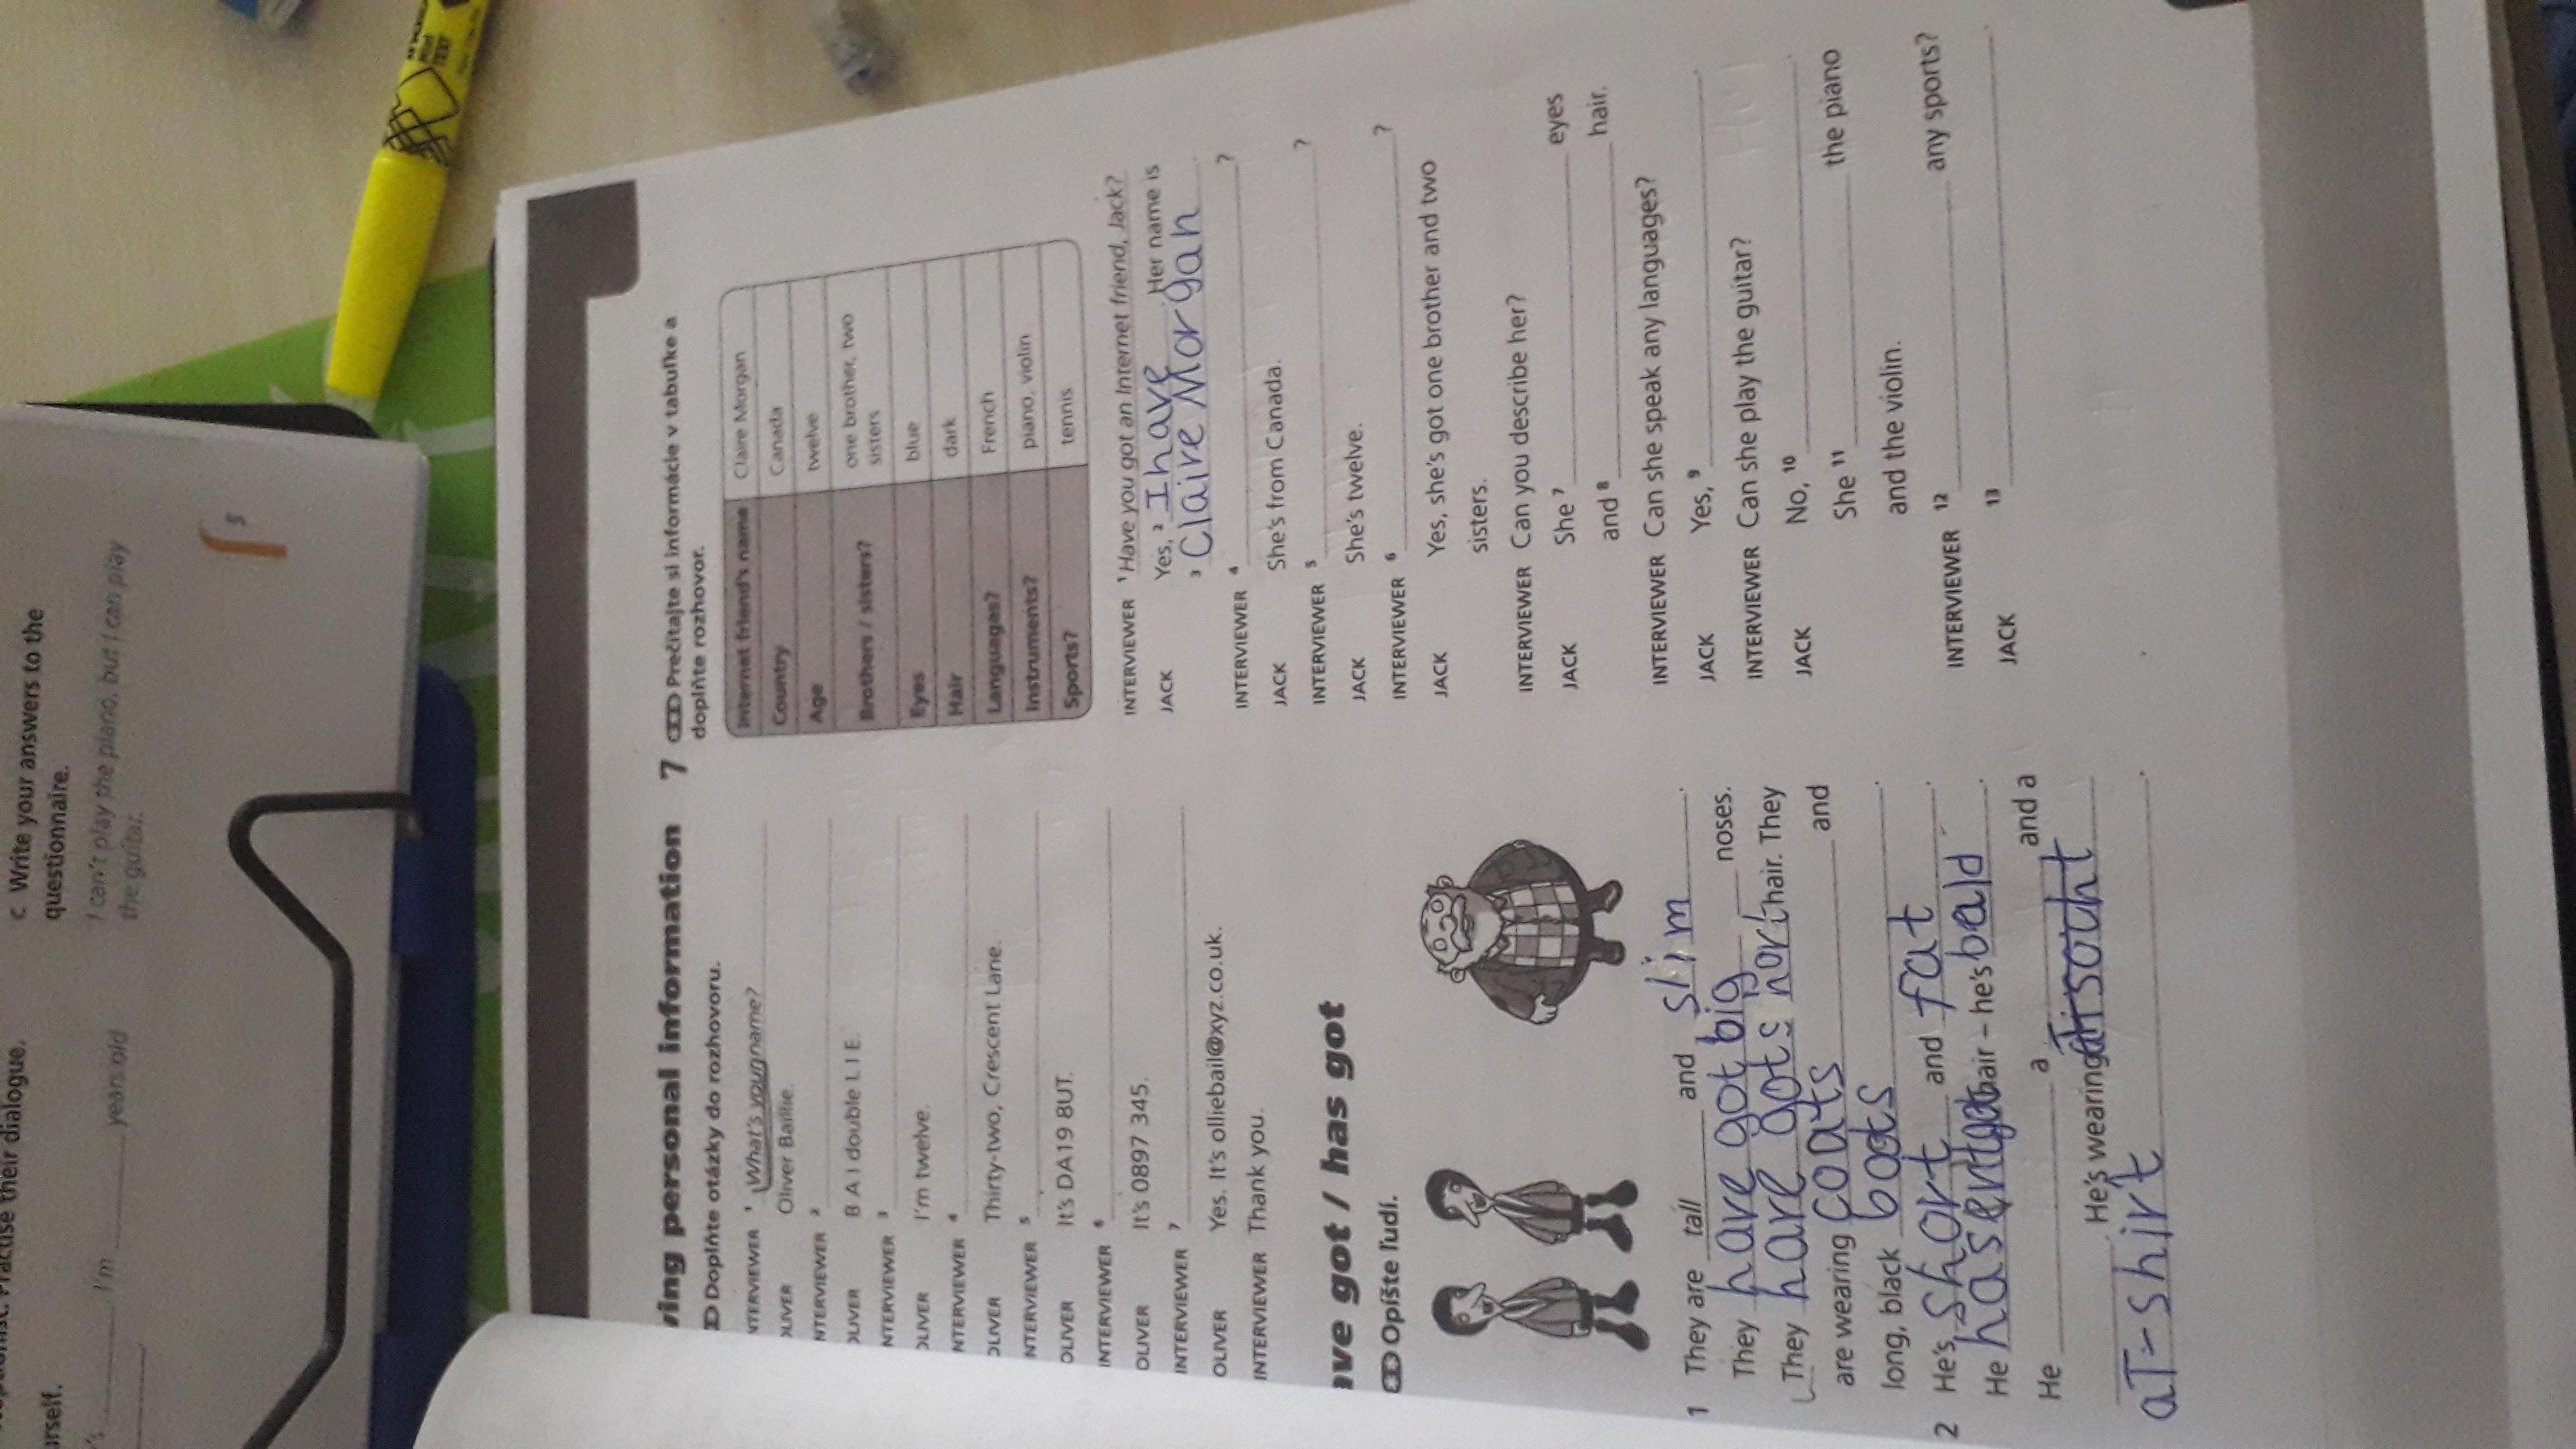 c Write your answers to the
questionnaire.
I can't play the piano, but I can play
the guitar.
Practise their dialogue.
I'm
years old
5
ving personal information
Doplňte otázky do rozhovoru.
NTERVIEWER 1 What's your name?
OLIVER Oliver Baillie.
NTERVIEWER 2
OLIVER B A I double L I E.
NTERVIEWER 3
OLIVER I'm twelve.
NTERVIEWER 4
OLIVER Thirty-two, Crescent Lane.
NTERVIEWER 5
OLIVER It's DA19 8UT.
INTERVIEWER 6
OLIVER It's 0897 345.
INTERVIEWER 7
OLIVER Yes. It's olliebail@xyz.co.uk.
INTERVIEWER Thank you.
ave got / has got
Opíšte ľudí.
1 They are tall and slim.
They have got big noses.
They have got hair. They
are wearing coats and
long, black boots.
2 He's short and fat.
He hair – he's bald.
He a and a
He's wearing
a T-shirt.
7 Prečítajte si informácie v tabuľke a
doplňte rozhovor.
Internet friend's name Claire Morgan
Country Canada
Age twelve
Brothers / sisters? one brother, two
sisters
Eyes blue
Hair dark
Languages? French
Instruments? piano, violin
Sports? tennis
INTERVIEWER 1 Have you got an Internet friend, Jack?
JACK Yes, 2 I have. Her name is
3 Claire Morgan.
INTERVIEWER 4 ?
JACK She's from Canada.
INTERVIEWER 5 ?
JACK She's twelve.
INTERVIEWER 6 ?
JACK Yes, she's got one brother and two
sisters.
INTERVIEWER Can you describe her?
JACK She 7 eyes
and 8 hair.
INTERVIEWER Can she speak any languages?
JACK Yes, 9 .
INTERVIEWER Can she play the guitar?
JACK No, 10 .
She 11 the piano
and the violin.
INTERVIEWER 12 any sports?
JACK 13 .